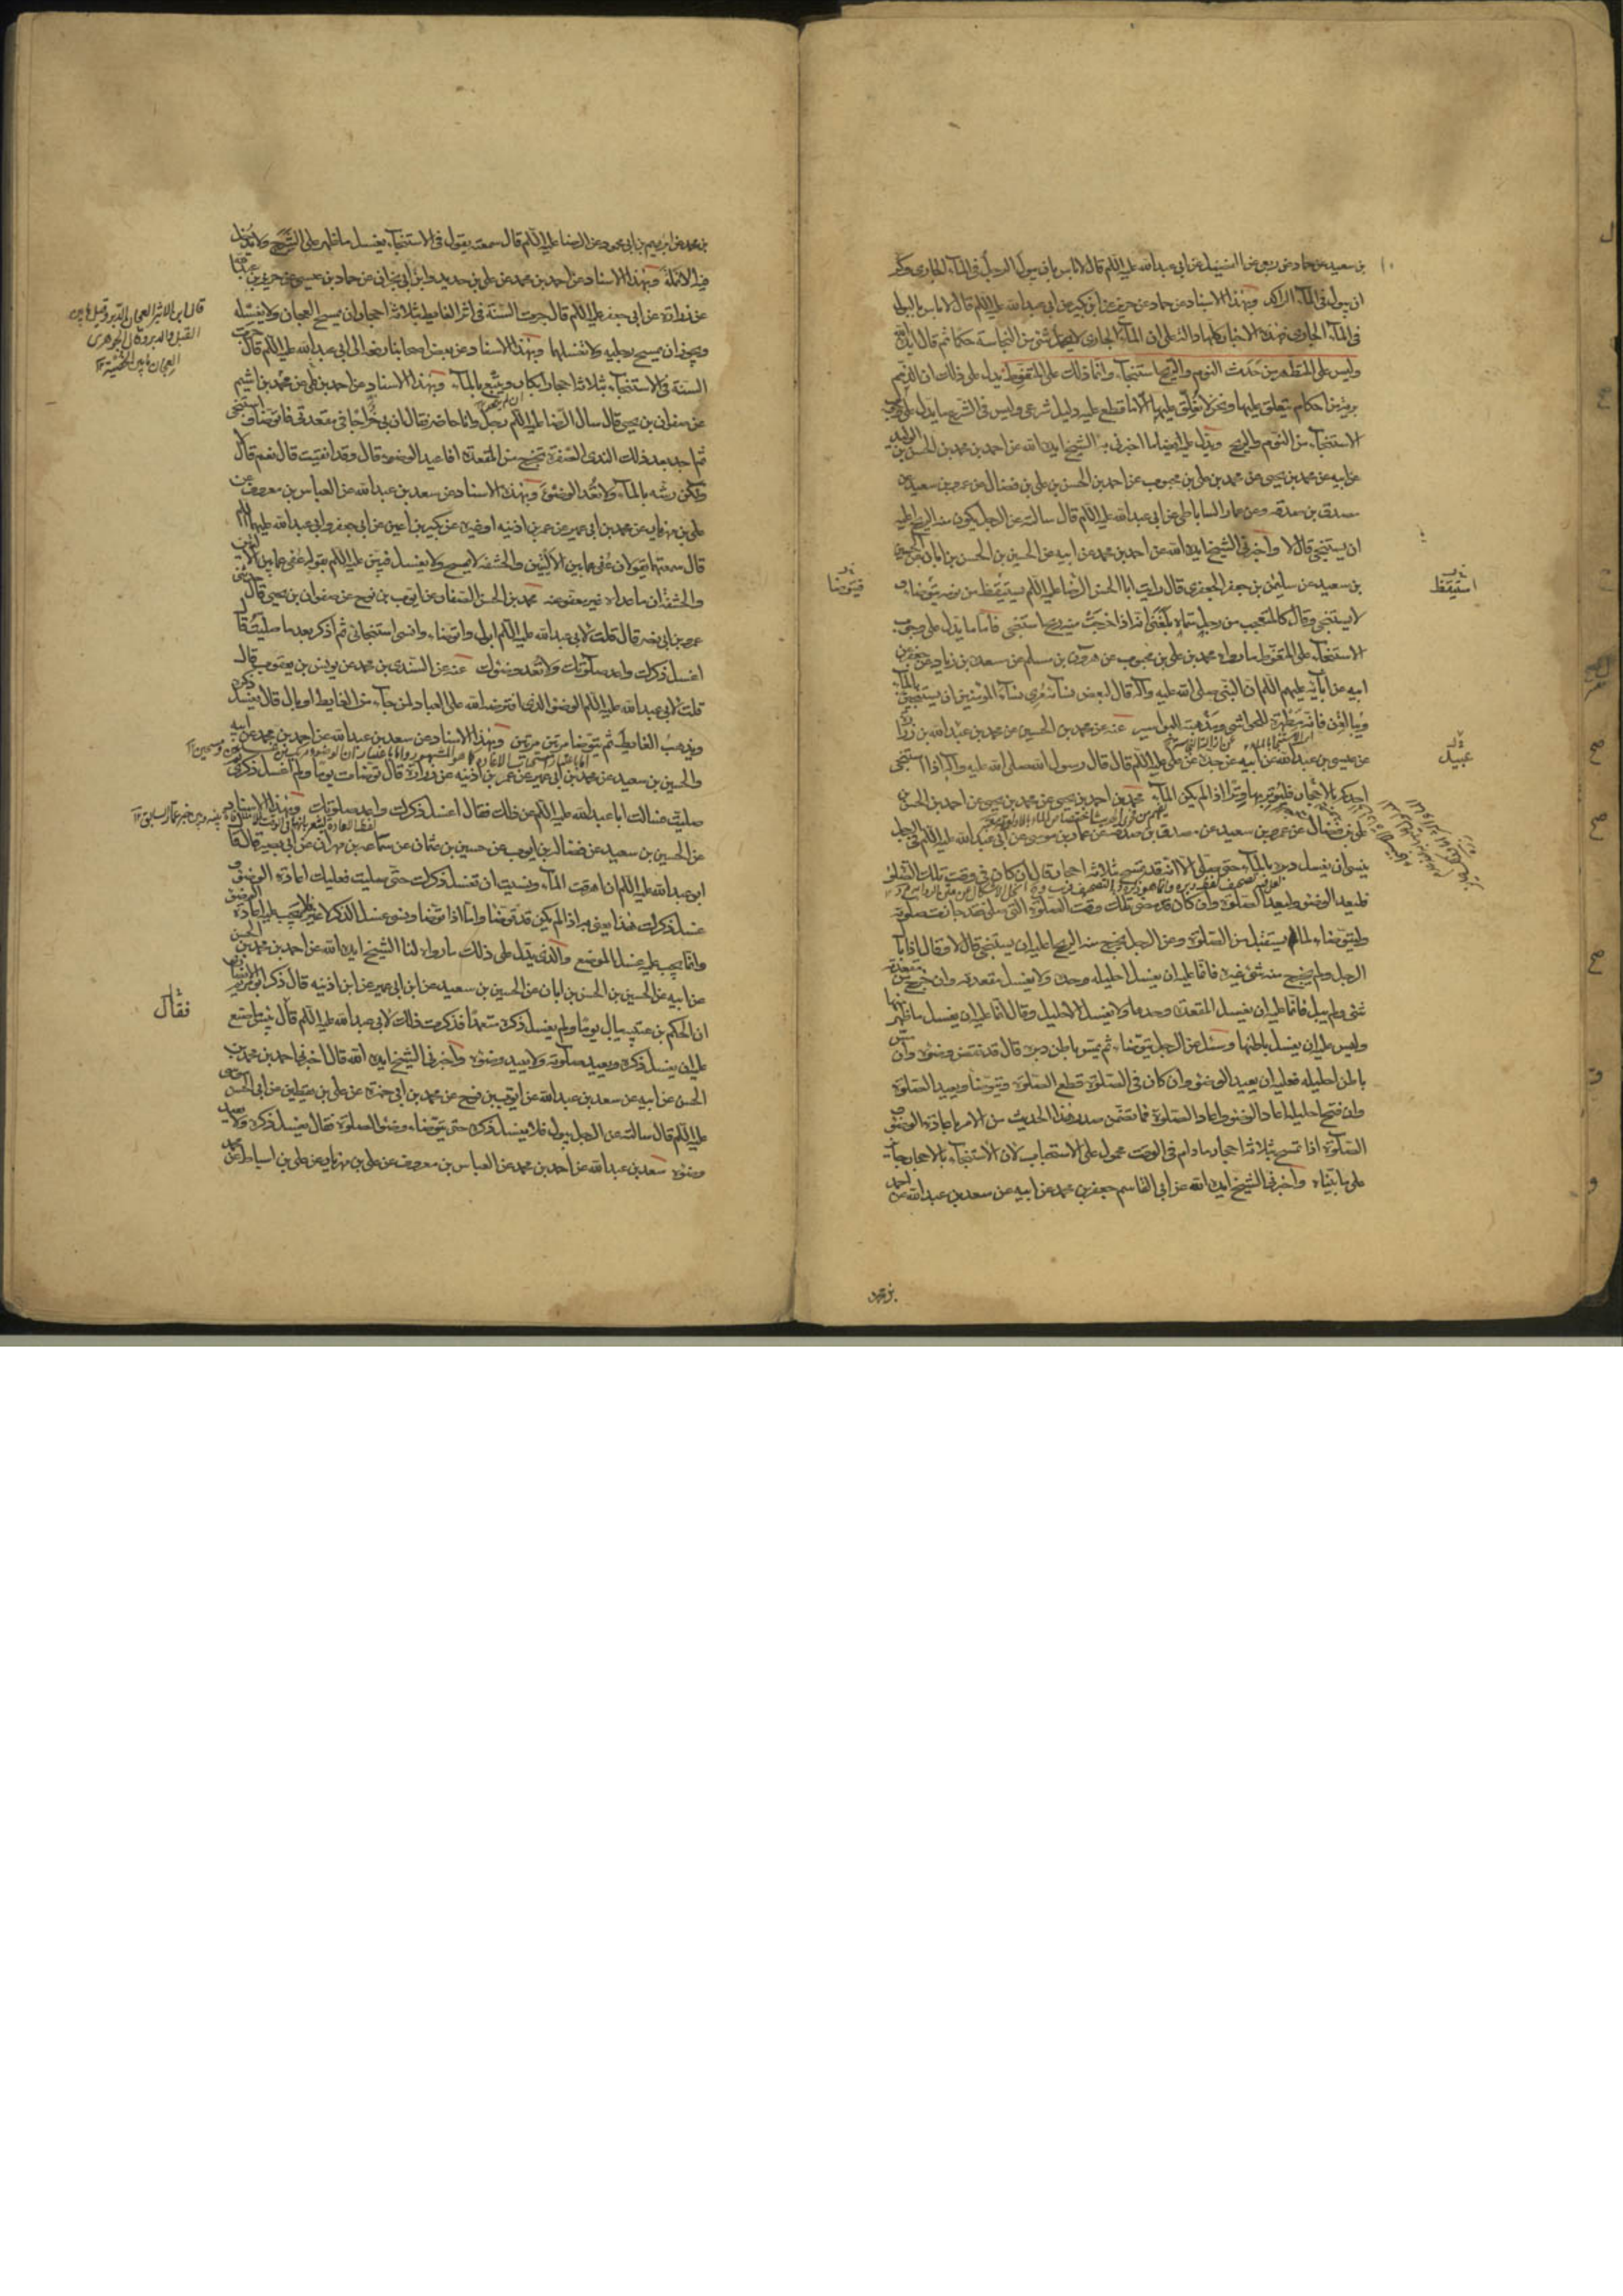 بن سعيد عن حماد عن ربعي عن الفضيل عن ابي عبد الله عليه السلام قال لا باس بان يبول الرجل في الماء الجاري وكره
ان يبول في الماء الراكد وبهذا الاسناد عن حماد عن حريز عن ابن بكير عن ابي عبد الله عليه السلام قال لا باس بالبول
في الماء الجاري فهذه الاخبار كلها دالة على ان الماء الجاري لا يحمله شئ من النجاسة حكما ثم قال ايده الله
وليس على المتطهر من حدث النوم والريح استنجاء وانما ذلك على المتغوط يدل على ذلك ان الذمم
بريئة من احكام تتعلق عليها ونحن لا نعلق عليها الا ما قطع عليه دليل شرعي وليس في الشرع ما يدل على وجوب
الاستنجاء من النوم والريح ويدل عليه ايضا ما اخبرني به الشيخ ايده الله عن احمد بن محمد بن الحسن بن الوليد
عن ابيه عن محمد بن يحيى عن محمد بن علي بن محبوب عن احمد بن الحسن بن علي بن فضال عن عمرو بن سعيد عن
مصدق بن صدقة عن عمار الساباطي عن ابي عبد الله عليه السلام قال سالته عن الرجل يكون منه الريح اعليه
ان يستنجي قال لا واخبرني الشيخ ايده الله عن احمد بن محمد عن ابيه عن الحسين بن الحسن بن ابان عن الحسين
بن سعيد عن سليمن بن جعفر الجعفري قال رايت ابا الحسن الرضا عليه السلام يستيقظ من نومه يتوضا و
استيقظ
فيتوضا
لا يستنجي وقال كالمتعجب من رجل سماه بلغني انه اذا خرجت منه ريح استنجى فاما ما يدل على وجوب
الاستنجاء على المتغوط ما رواه محمد بن علي بن محبوب عن هرون بن مسلم عن مسعدة بن زياد عن جعفر عن
ابيه عن آبائه عليهم السلام ان النبي صلى الله عليه وآله قال لبعض نسائه مري نساء المؤمنين ان يستنجين بالماء
ويبالغن فانه مطهرة للحواشي ومذهبة البواسير عنه عن محمد بن الحسين عن محمد بن عبد الله بن زرارة
عن عيسى بن عبد الله عن ابيه عن جده عن علي عليه السلام قال قال رسول الله صلى الله عليه وآله اذا استنجى
عبيد
احدكم بالاحجار فليوتر بها وترا اذا لم يكن الماء محمد بن احمد بن يحيى عن محمد بن يحيى عن احمد بن الحسن
علي بن فضال عن عمرو بن سعيد عن مصدق بن صدقة عن عمار بن موسى عن ابي عبد الله عليه السلام في الرجل
ينسى ان يغسل دبره بالماء حتى صلى الا انه قد تمسح بثلاثة احجار قال ان كان في وقت تلك الصلوة
فليعد الوضوء وليعد الصلوة وان كان قد مضى تلك وقت الصلوة التي صلى فقد جازت صلوته
وليتوضاء لما يستقبل من الصلوة وعن الرجل يخرج منه الريح اعليه ان يستنجي قال لا وقال اذا بال
الرجل ولم يخرج منه شئ غيره فانما عليه ان يغسل احليله وحده ولا يغسل مقعدته وان خرج من مقعدته
شئ ولم يبل فانما عليه ان يغسل المقعدة وحدها ولا يغسل الاحليل وقال انما عليه ان يغسل ما ظهر منها
وليس عليه ان يغسل باطنها وسئل عن الرجل يتوضاء ثم يمس باطن دبره قال قد نقض وضوئه وان مس
باطن احليله فعليه ان يعيد الوضوء وان كان في الصلوة قطع الصلوة ويتوضا ويعيد الصلوة
وان فتح احليله اعاد الوضوء واعاد الصلوة فما تضمن صدر هذا الحديث من الامر باعادة الوضوء و
الصلوة اذا تمسح بثلاثة احجار ما دام في الوقت محمول على الاستحباب لان الاستنجاء بالاحجار جائز
على ما بيناه واخبرني الشيخ ايده الله عن ابي القاسم جعفر بن محمد عن ابيه عن سعد بن عبد الله عن احمد
بن محمد
بن محمد عن ابرهيم بن ابي محمود عن الرضا عليه السلام قال سمعته يقول في الاستنجاء يغسل ما ظهر على الشرج ولا يدخل
فيه الانملة وبهذا الاسناد عن احمد بن محمد عن علي بن حديد وابن ابي نجران عن حماد بن عيسى عن حريز بن عبد الله
عن زرارة عن ابي جعفر عليه السلام قال جرت السنة في اثر الغايط بثلاثة احجار وان يمسح العجان ولا يغسله
قال ابن الاثير العجان الدبر وقيل ما بين
القبل والدبر وقال الجوهري
العجان ما بين الخصية
ويجوز ان يمسح رجليه ولا يغسلهما وبهذا الاسناد عن بعض اصحابنا رفعه الى ابي عبد الله عليه السلام قال جرت
السنة في الاستنجاء بثلاثة احجار ابكار ويتبع بالماء وبهذا الاسناد عن احمد بن علي عن محمد بن اشيم
عن صفوان بن يحيى قال سال الرضا عليه السلام رجل وانا حاضر فقال ان بي خراجا في مقعدتي فاتوضا واستنجي
ثم اجد بعد ذلك الندى الصفرة تخرج من المقعدة افاعيد الوضوء قال وقد انقيت قال نعم قال لا
ولكن رشه بالماء ولا تعد الوضوء وبهذا الاسناد عن سعد بن عبد الله عن العباس بن معروف عن
علي بن مهزيار عن محمد بن ابي عمير عن عمر بن اذينه او غيره عن بكير بن اعين عن ابي جعفر وابي عبد الله عليهما السلام
قال سمعتهما يقولان عفي عما بين الاليتين والحشفة لا يمسح ولا يغسل فبين عليه السلام بقوله عفي عما بين الاليتين
والحشفة ان ما عداه غير معفو عنه محمد بن الحسن الصفار عن ايوب بن نوح عن صفوان بن يحيى قال حدثني
عمرو بن ابي نصر قال قلت لابي عبد الله عليه السلام ابول واتوضاء وانسى استنجائي ثم اذكر بعد ما صليت قال
اغسل ذكرك واعد صلوتك ولا تعد وضوئك عنه عن السندي بن محمد عن يونس بن يعقوب قال
قلت لابي عبد الله عليه السلام الوضوء الذي افترضه الله على العباد لمن جاء من الغايط او بال قال يغسل ذكره
ويذهب الغايط ثم يتوضا مرتين مرتين وبهذا الاسناد عن سعد بن عبد الله عن احمد بن محمد عن ابيه
والحسين بن سعيد عن محمد بن ابي عمير عن عمر بن اذينه عن زرارة قال توضات يوما ولم اغسل ذكري ثم
صليت فسالت ابا عبد الله عليه السلام عن ذلك فقال اغسل ذكرك واعد صلوتك وبهذا الاسناد
عن الحسين بن سعيد عن فضالة بن ايوب عن حسين بن عثمان عن سماعة بن مهران عن ابي بصير قال قال
ابو عبد الله عليه السلام ان اهرقت الماء ونسيت ان تغسل ذكرك حتى صليت فعليك اعادة الوضوء و
غسل ذكرك هذا يعني به اذا لم يكن قد توضا واما اذا توضا ونسي غسل الذكر لا غير لم يجب عليه اعادة الوضوء
وانما يجب عليه غسل الموضع والذي يدل على ذلك ما رواه لنا الشيخ ايده الله عن احمد بن محمد بن الحسن
عن ابيه عن الحسين بن الحسن بن ابان عن الحسين بن سعيد عن ابن ابي عمير عن ابن اذينه قال ذكر ابو مريم الانصاري
ان الحكم بن عتيبه بال يوما ولم يغسل ذكره متعمدا فذكرت ذلك لابي عبد الله عليه السلام قال بئس ما صنع
فقال
عليه ان يغسل ذكره ويعيد صلوته ولا يعيد وضوئه واخبرني الشيخ ايده الله قال اخبرني احمد بن محمد بن
الحسن عن ابيه عن سعد بن عبد الله عن ايوب بن نوح عن محمد بن ابي حمزة عن علي بن يقطين عن ابي الحسن موسى
عليه السلام قال سالته عن الرجل يبول فلا يغسل ذكره حتى يتوضاء وضوء الصلوة فقال يغسل ذكره ولا يعيد
وضوئه سعد بن عبد الله عن احمد بن محمد عن العباس بن معروف عن علي بن مهزيار عن علي بن اسباط عن محمد